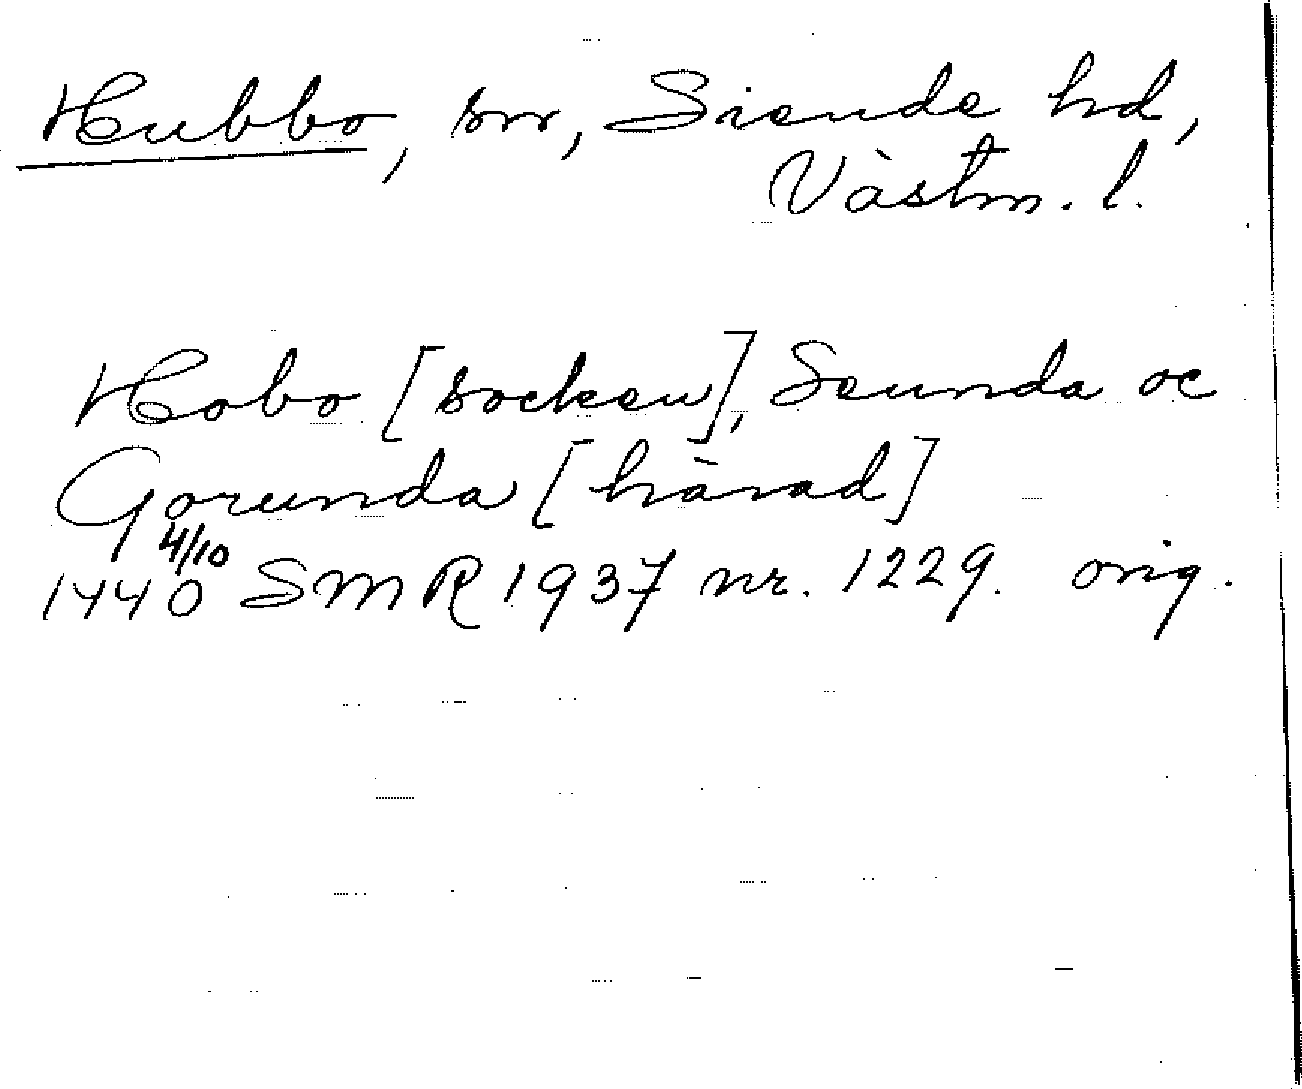 Hubbo, sn, Siende hd,
Västm. l.
Hobo [socken], Seunda oc
Gorunda [härad]
4/10
1440 SMR 1937 nr. 1229. orig.